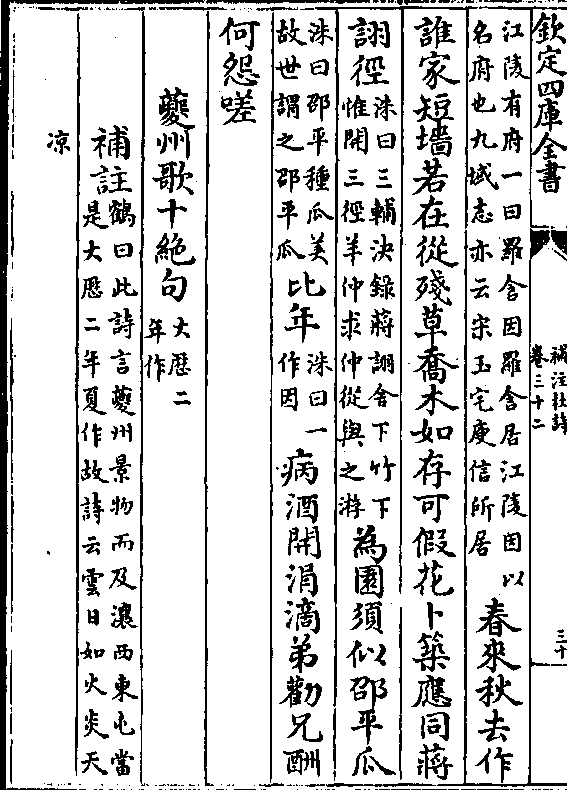 欽定四庫全書
補注杜詩
卷三十二
三十
江陵有府一曰羅含因羅含居江陵因以
名府也九域志亦云宋玉宅庾信所居
春來秋去作
誰家短墻若在從殘草喬木如存可假花卜築應同蔣
詡徑
洙曰三輔決錄蔣詡舍下竹下
惟開三徑羊仲求仲從與之游
為園須似邵平瓜
洙曰邵平種瓜美
故世謂之邵平瓜
比年
洙曰一
作因
病酒開涓滴弟勸兄酬
何怨嗟
夔州歌十絶句
大厯二
年作
補註
鶴曰此詩言夔州景物而及瀼西東屯當
是大厯二年夏作故詩云雲日如火炎天
凉